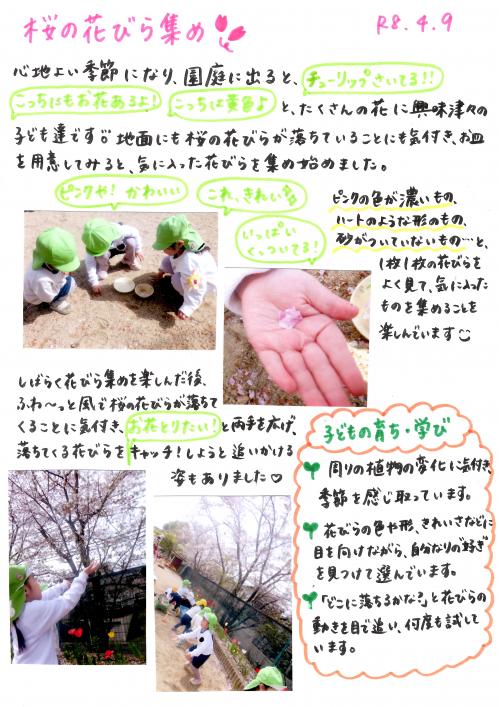 桜の花びら集め
R8.4.9
心地よい季節になり、園庭に出ると、チューリップさいてる!!
こっちにもお花あるよ! こっちは黄色よ と、たくさんの花に興味津々の
子ども達です。地面にも桜の花びらが落ちていることにも気付き、お皿
を用意してみると、気に入った花びらを集め始めました。
ピンクや! かわいい
これ、きれい
いっぱい
くっついてる!
ピンクの色が濃いもの、
ハートのような形のもの、
砂がついていないもの…と、
1枚1枚の花びらを
よく見て、気に入った
ものを集めることを
楽しんでいます
しばらく花びら集めを楽しんだ後、
ふわ〜っと風で桜の花びらが落ちて
くることに気付き、お花とりたい! と両手を広げ、
落ちてくる花びらをキャッチ!しようと追いかける
姿もありました♡
子どもの育ち・学び
周りの植物の変化に気付き、
季節を感じ取っています。
花びらの色や形、きれいさなどに
目を向けながら、自分なりの"好き"
を見つけて選んでいます。
「どこに落ちるかな?」と花びらの
動きを目で追い、何度も試して
います。